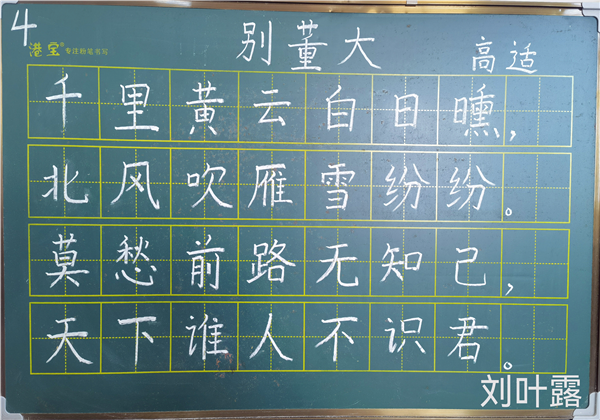 4
港宝 专注粉笔书写
别董大
高适
千里黄云白日曛,
北风吹雁雪纷纷。
莫愁前路无知己,
天下谁人不识君。
刘叶露